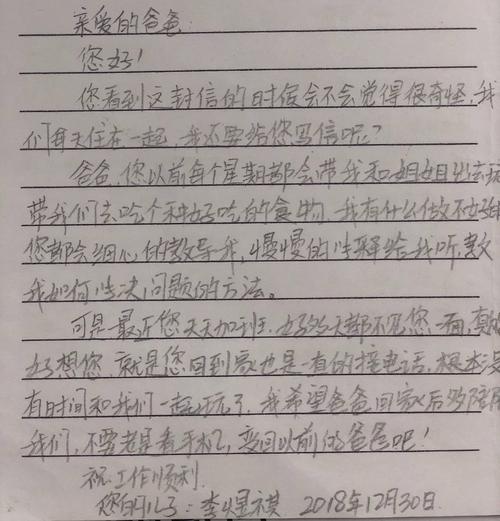 亲爱的爸爸
您好!
您看到这封信的时候会不会觉得很奇怪,我
们每天住在一起,我还要给您写信呢?
爸爸,您以前每个星期都会带我和姐姐出去玩
带我们去吃个种好吃的食物.我有什么做不好
您都会细心的教导我,慢慢的讲解给我听,教
我如何解决问题的方法。
可是最近您天天加班.好多天都不见您一面,真的
好想您.就是您回到家也是一直的接电话,根本没
有时间和我们一起玩了.我希望爸爸回家后多陪陪
我们,不要老是看手机,变回以前的爸爸吧!
祝:工作顺利
您的儿子:李煜祺 2018年12月30日